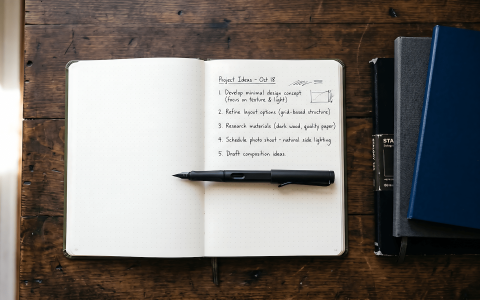 Project Ideas - Oct 18
1. Develop minimal design concept
(focus on texture & light)
2. Refine layout options (grid-based structure)
3. Research materials (dark wood, quality paper)
4. Schedule photo shoot - natural side lighting
5. Draft composition ideas